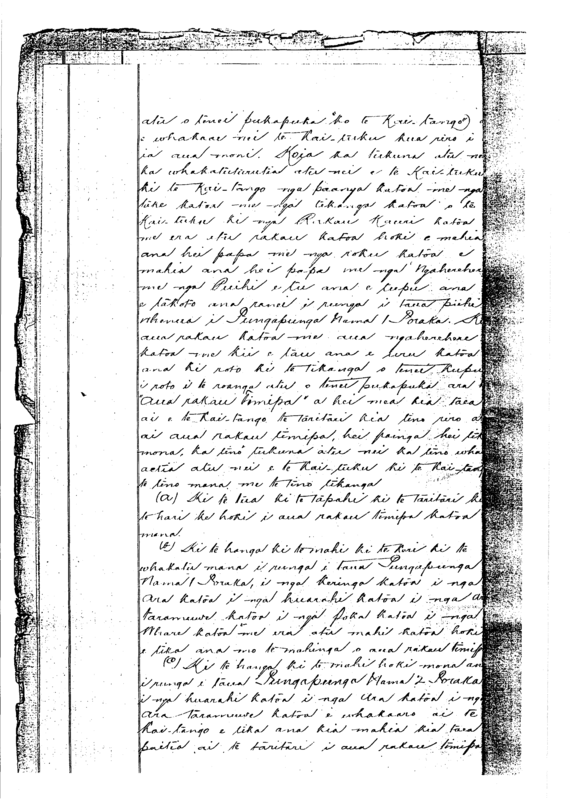 atu o tenei pukapuka "ko te Kai-tango")
e whakaae nei te Kai-tuku kua riro i
ia aua moni. Koia ka tukuna atu
ka whakatuturutia atu nei e te Kai-tuku
ki te Kai-tango nga paanga katoa me nga
take katoa me nga tikanga katoa o te
Kai-tuku ki nga Rakau Kauri katoa
me era atu rakau katoa hoki e mahia
ana hei papa me nga roku katoa e
mahia ana hei papa me nga Ngaherehere
me nga Puihi e tu ana e tupu ana
e takoto ana ranei i runga i taua piihi
whenua i Pungapunga Nama 1 Poraka.
aua rakau katoa me aua ngaherehere
katoa me kii e tau ana e uru katoa
ana ki roto ki te tikanga o tenei kupu
i roto i te roanga atu o tenei pukapuka ara
"aua rakau timipa" a hei mea kia taea
ai e te Kai-tango te taritari kia tino riro
ai aua rakau timipa, hei painga hoi
mona, ka tino tukuna atu nei ka tino
atu nei e te Kai-tuku ki te
te tino mana me te tino tikanga
(a) Ki te tua ki te tapahi ki te taritari
te hari ke hoki i aua rakau timipa katoa
mona.
Ki te hanga ki te mahi ki te keri ki te
whakatu mana i runga i taua Pungapunga
Nama 1 Poraka, i nga keringa katoa i nga
ara katoa i nga huarahi katoa i nga
taramuwe katoa i nga poka katoa i nga
Whare katoa me era atu mahi katoa hoki
e tika ana mo te mahinga o aua rakau timipa
Ki te hanga ki te mahi hoki mona
i runga i taua Pungapunga Nama 2 Poraka
i nga huarahi katoa i nga Ara katoa i nga
Ara taramuwe katoa e whakaaro ai te
Kai-tango e tika ana kia mahia kia taea
paitia ai te taritari i aua rakau timipa